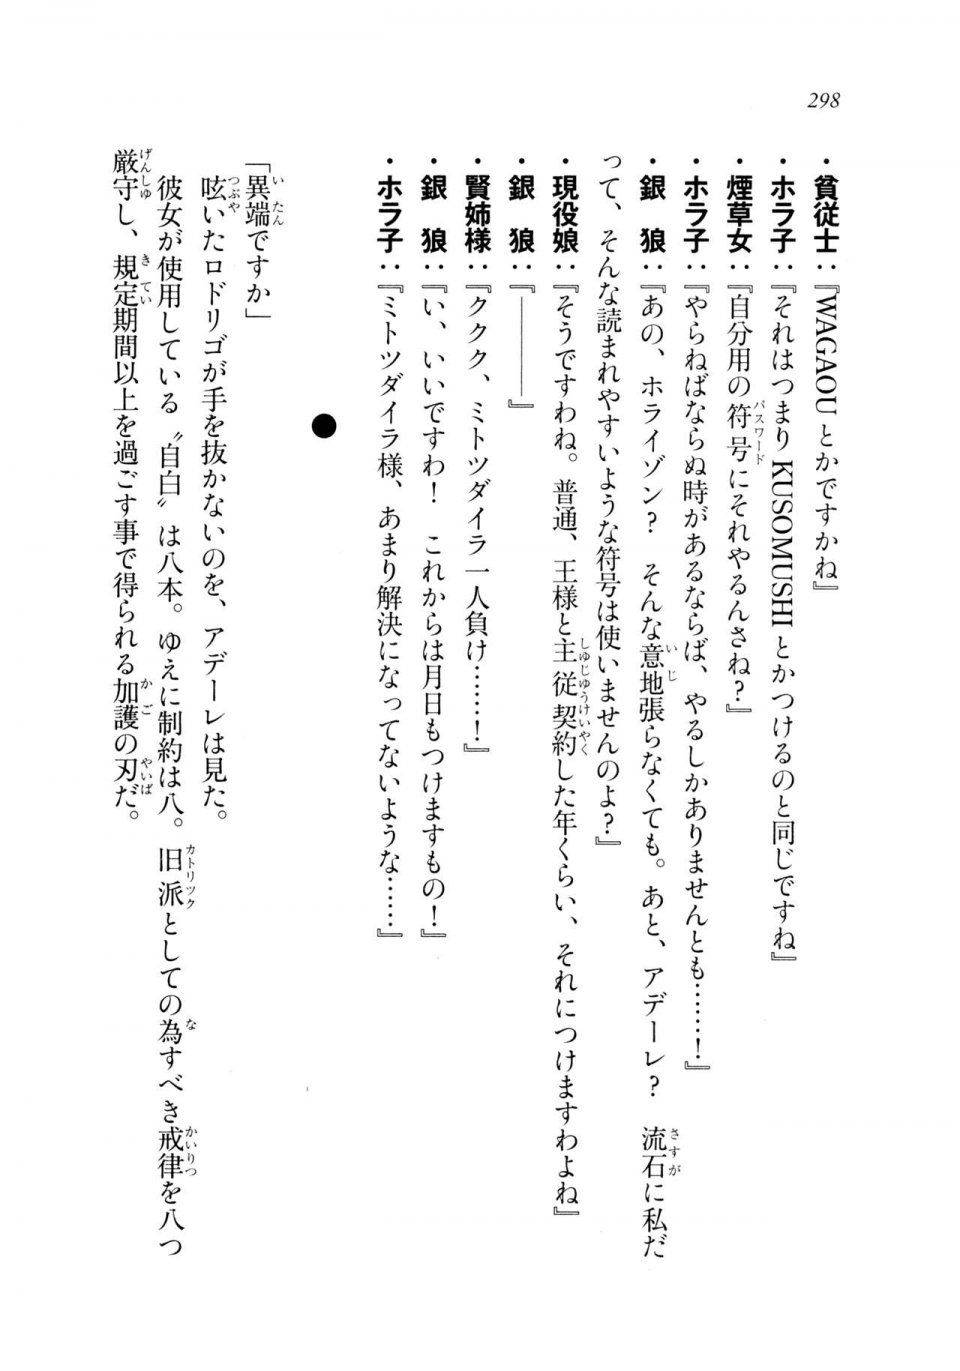 298
・貧従士：『WAGAOU とかですかね』
・ホラ子：『それはつまり KUSOMUSHI とかつけるのと同じですね』
・煙草女：『自分用の符号にそれやるんさね？』
・ホラ子：『やらねばならぬ時があるならば、やるしかありませんとも……！』
・銀　狼：『あの、ホライゾン？　そんな意地張らなくても。あと、アデーレ？　流石に私だ
って、そんな読まれやすいような符号は使いませんのよ？』
・現役娘：『そうですわね。普通、王様と主従契約した年くらい、それにつけますわよね』
・銀　狼：『――――』
・賢姉様：『ククク、ミトツダイラ一人負け……！』
・銀　狼：『い、いいですわ！　これからは月日もつけますもの！』
・ホラ子：『ミトツダイラ様、あまり解決になってないような……』
●
「異端ですか」
呟いたロドリゴが手を抜かないのを、アデーレは見た。
彼女が使用している〝自白〟は八本。ゆえに制約は八。旧派としての為すべき戒律を八つ
厳守し、規定期間以上を過ごす事で得られる加護の刃だ。